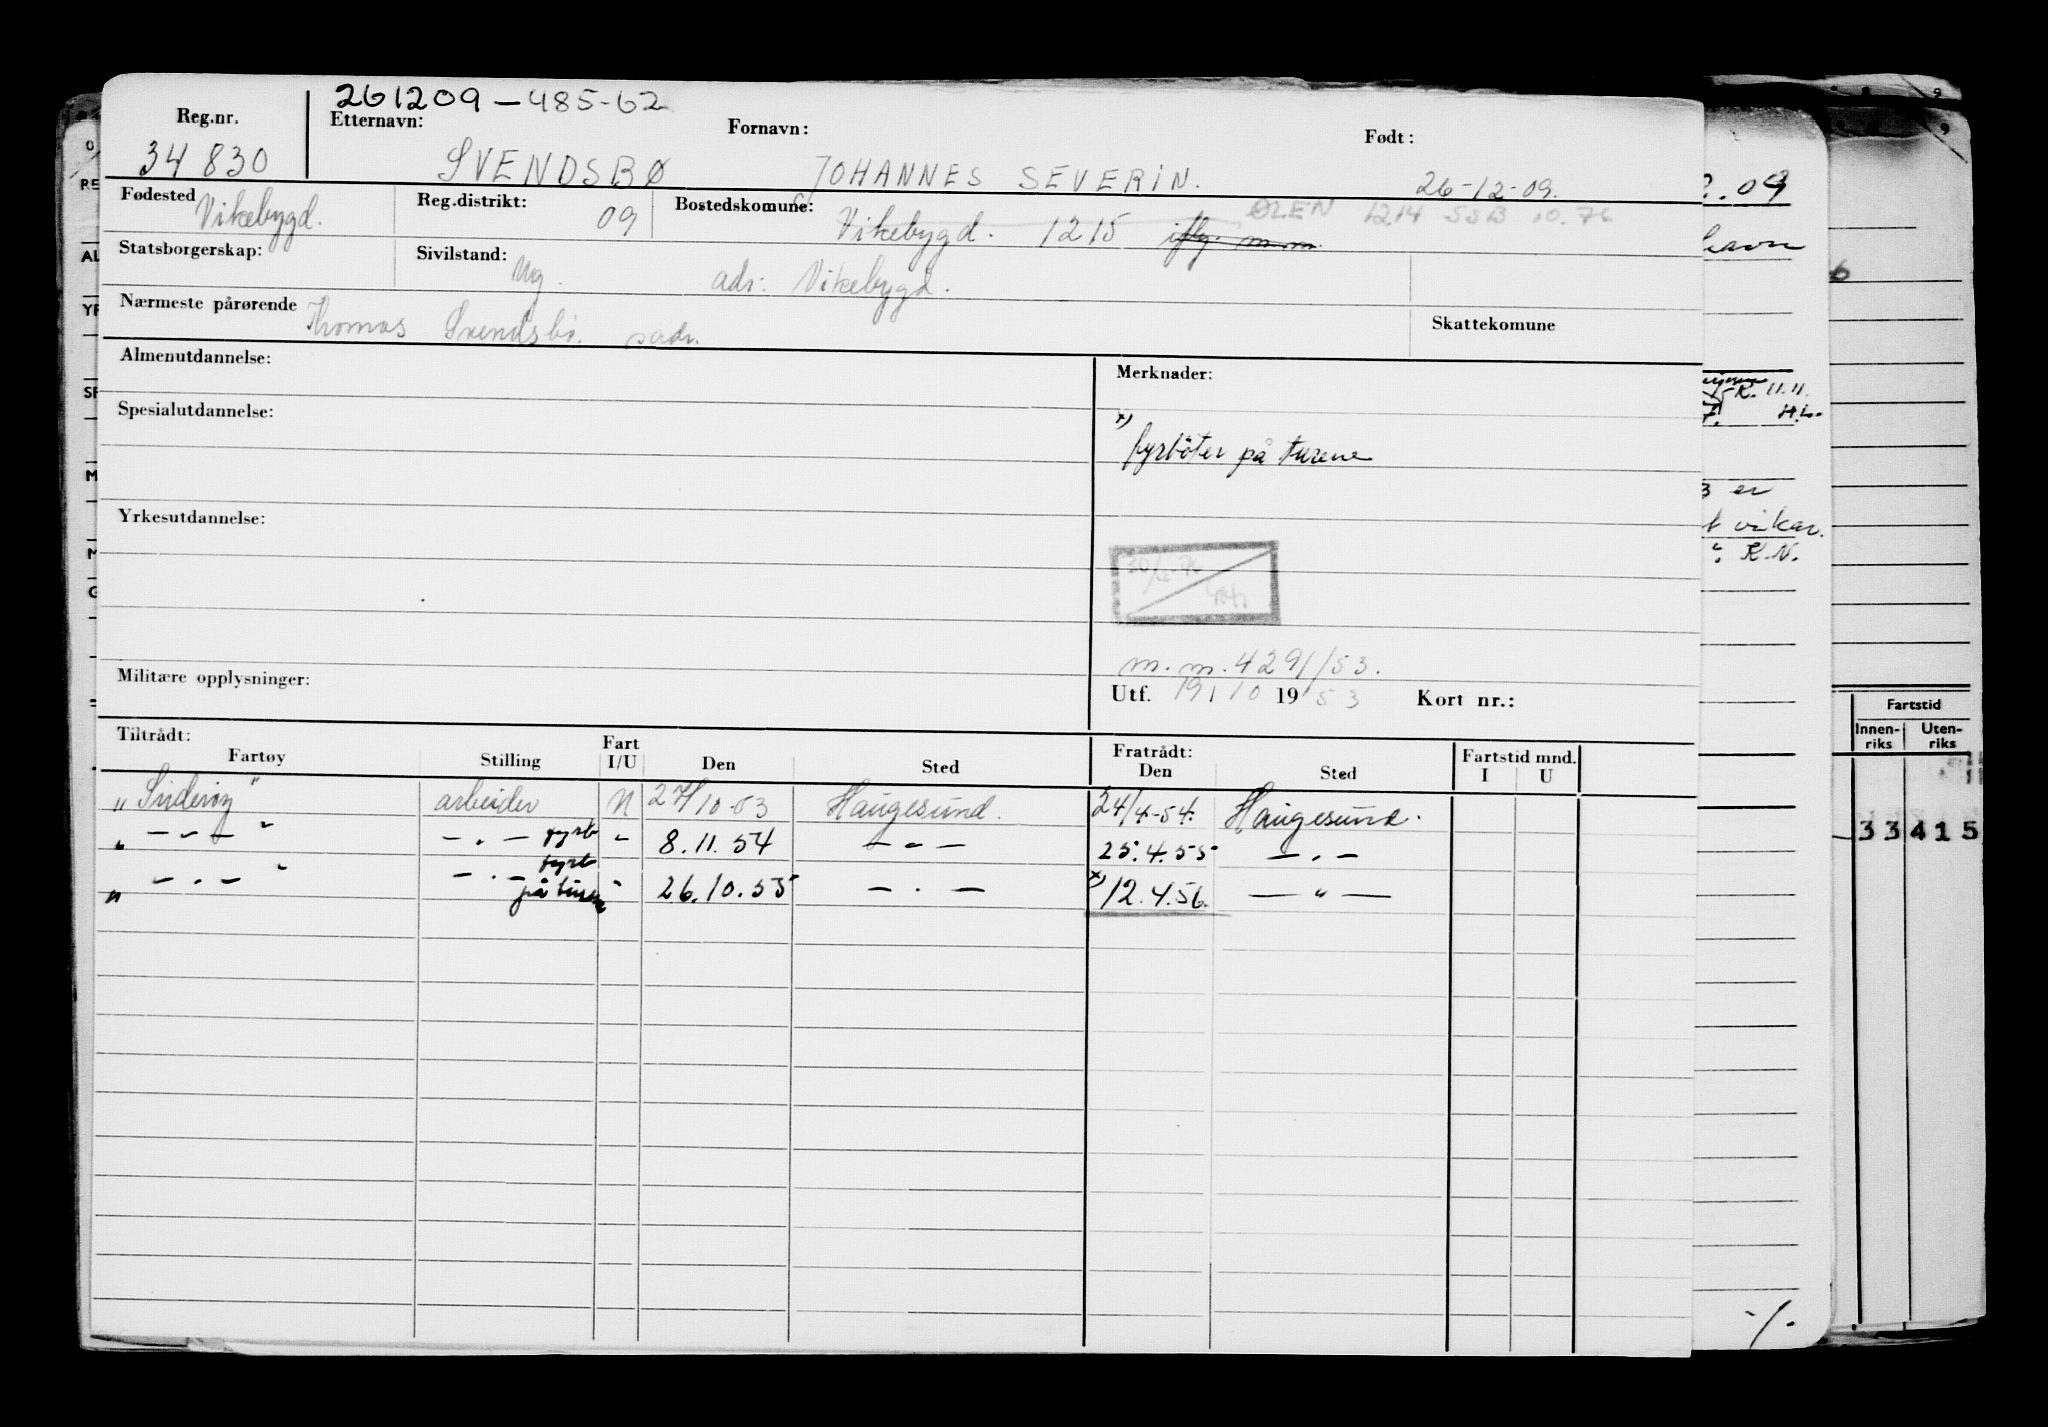 261209-485-62
Reg.nr. Etternavn: Fornavn: Født:
34830 SVENDSBØ JOHANNES SEVERIN. 26-12-09.
Fødested Vikebygd. Reg.distrikt: 09 Bostedskomune: Vikebygd. 1215 iflg. m.m. ØLEN 1214 SSB 10.76
Statsborgerskap: Sivilstand: Ug. adr: Vikebygd.
Nærmeste pårørende Thomas Svendsbø. s.adr. Skattekomune
Almenutdannelse: Merknader:
Spesialutdannelse: x) fyrbøter på turene
Yrkesutdannelse:
m.m. 4291/53.
Militære opplysninger: Utf. 19/10 1953 Kort nr.:
Tiltrådt: Fratrådt:
Fartøy Stilling Fart I/U Den Sted Den Sted Fartstid mnd. I U
" Suderøy " arbeider N 27/10-53 Haugesund. 24/4-54. Haugesund.
" — " — " — . — fyrb " 8.11.54 — " — 25.4.55 — . —
" — . — " — . — fyrb på turen " 26.10.55 — . — x) 12.4.56. — " —
2.09
havn
K. 11.11.
3 er
t vikar.
". K.N.
-/.
Fartstid
Innen-riks Uten-riks
33 415